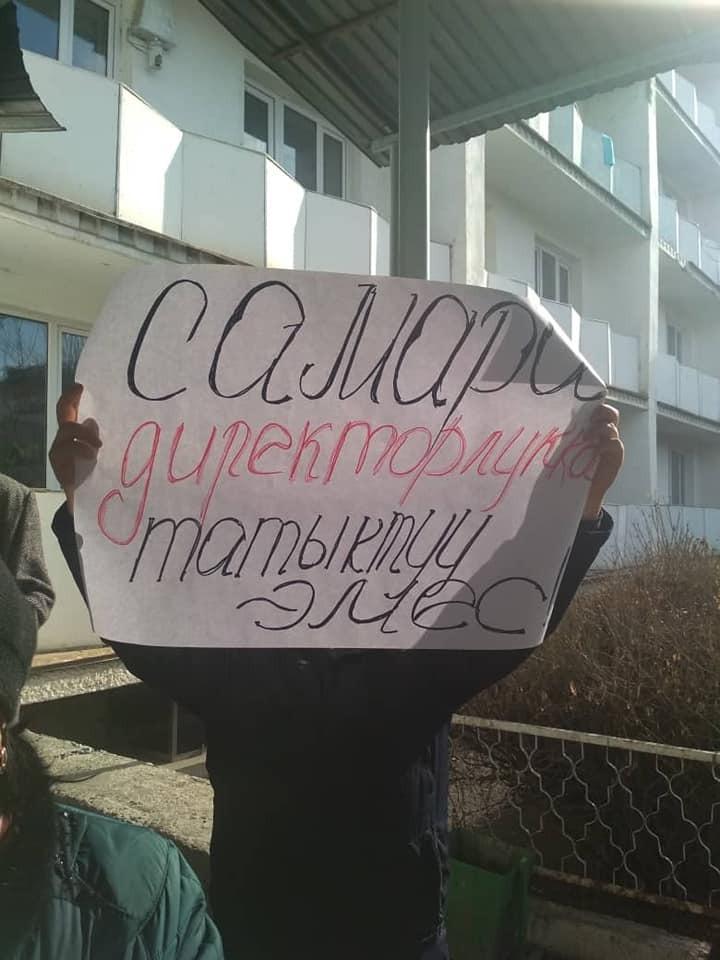 Самари
директорлукка
татыктуу
эмес!